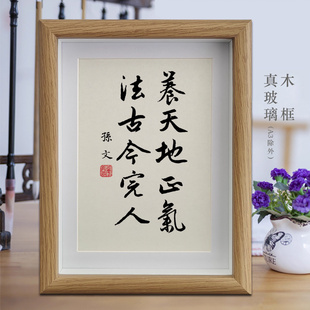 養天地正氣
法古今完人
孫文
木框
真玻璃
(A3除外)